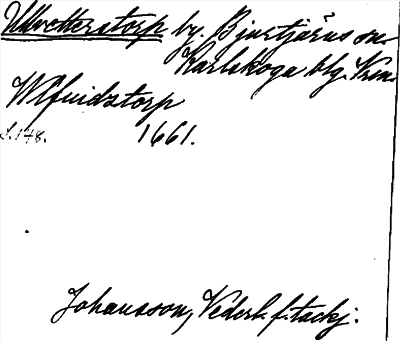 Ulvetterstorp by. Bjurtjärns sn.
Karlskoga blg. Vrm.
Wlfuidztorp
s. 148. 1661.
Johansson, Vederl. f. tackj.